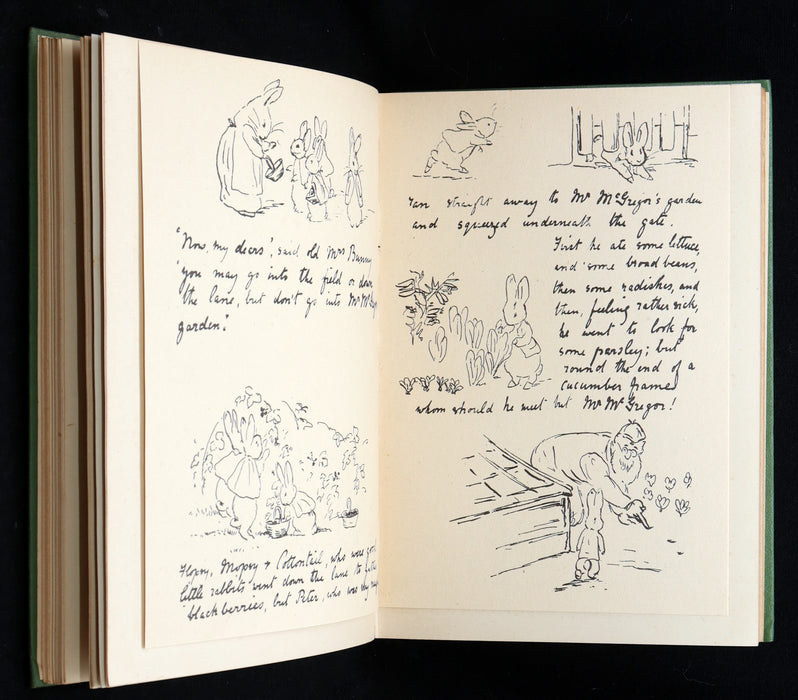 "Now, my dears", said old Mrs Bunny
"you may go into the field or down
the lane, but don't go into Mr McGregor's
garden."
Flopsy, Mopsy + Cottontail, who were good
little rabbits went down the lane to gather
blackberries, but Peter, who was very naughty
ran straight away to Mr McGregor's garden
and squeezed underneath the gate.
First he ate some lettuce,
and some broad beans,
then some radishes, and
then, feeling rather sick,
he went to look for
some parsley; but
round the end of a
cucumber frame
whom should he meet but Mr McGregor!